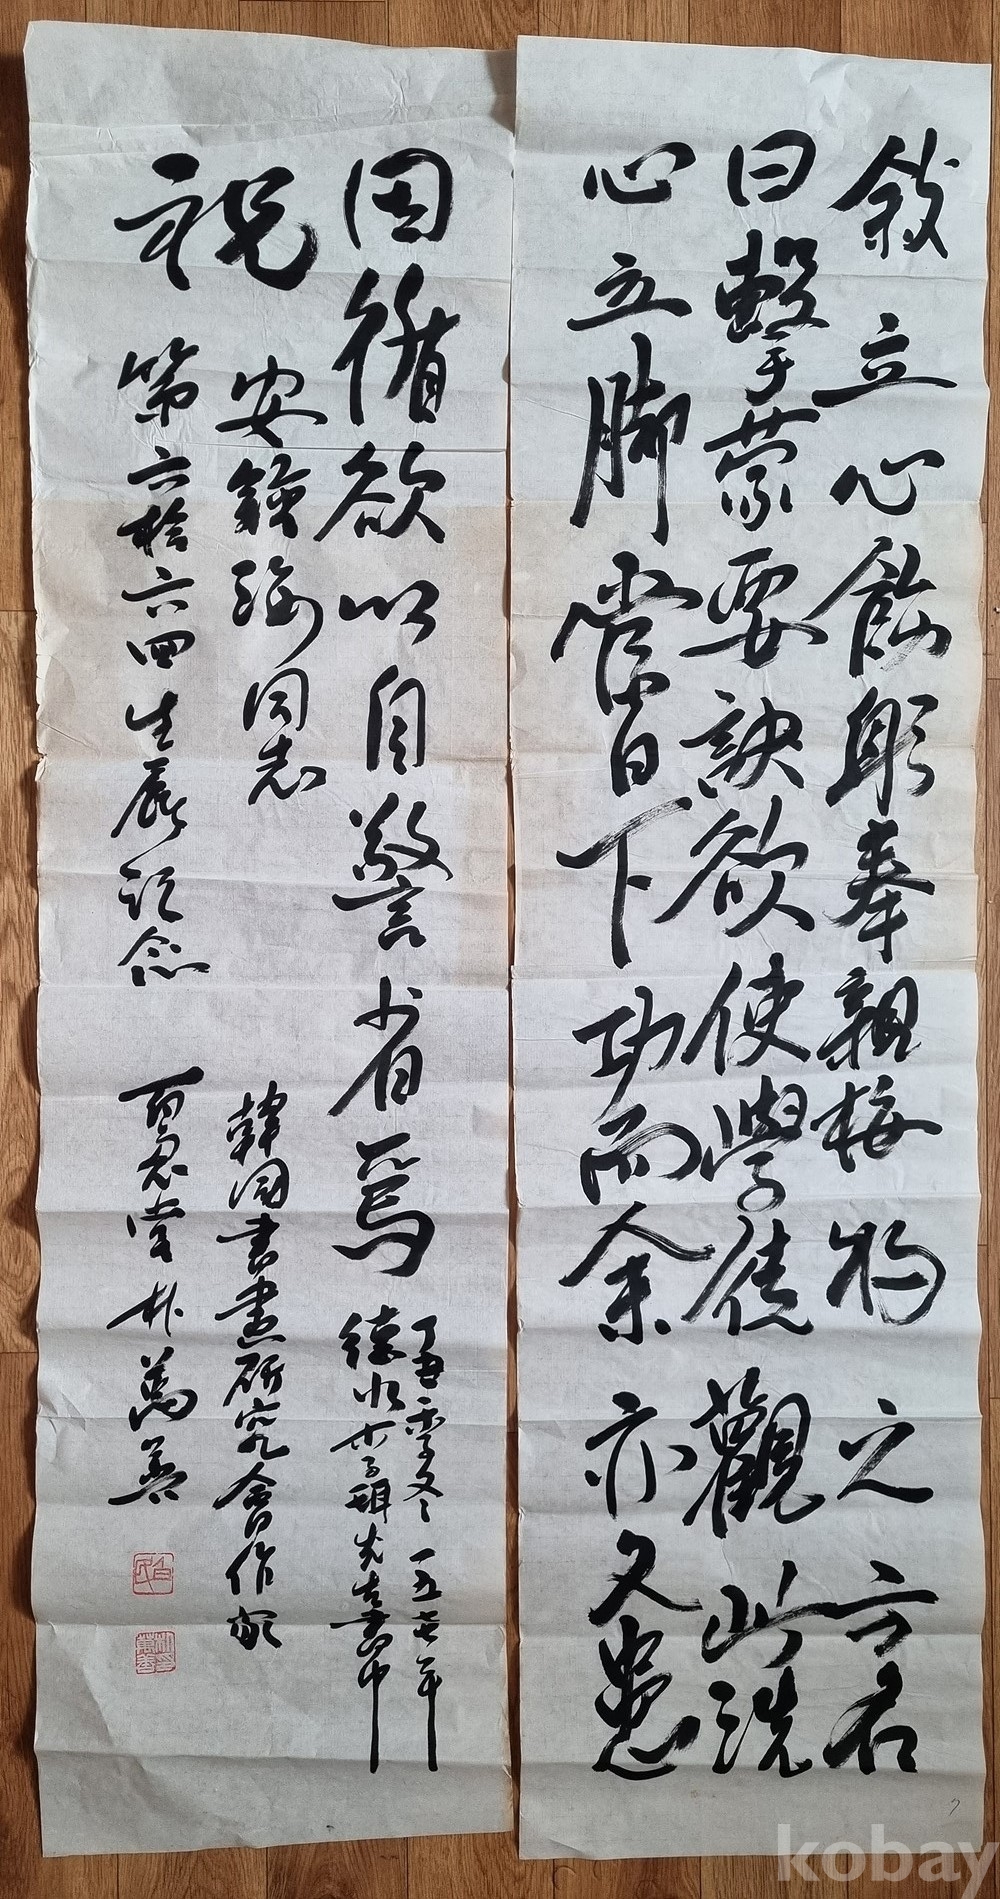 敍立心飭躬奉親接物之方名
曰擊蒙要訣欲使學徒觀此洗
心立脚當日下功而余亦久患
因循欲以自警省焉
丁丑季冬一五七七年
德水李珥先生書中
祝
安鍾 同志
第六拾六回生辰記念
韓國書畫硏究會作家
百忍堂 朴萬善
kobay